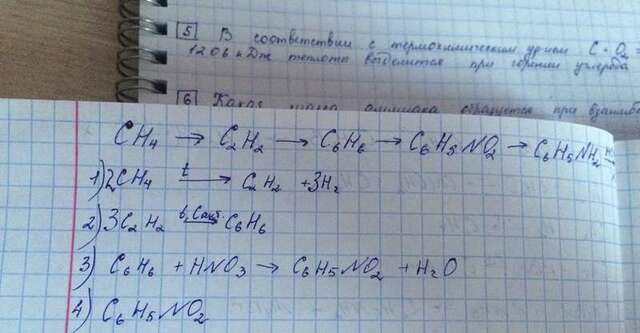 5 В соответствии с термохимическим ур-ием C + O2
1206 кДж теплоты выделится при горении углерода
6 Какая масса аммиака образуется при взаимо
CH4 → C2H2 → C6H6 → C6H5NO2 → C6H5NH2
1) 2CH4 t→ C2H2 + 3H2
2) 3C2H2 t, Cакт→ C6H6
3) C6H6 + HNO3 → C6H5NO2 + H2O
4) C6H5NO2